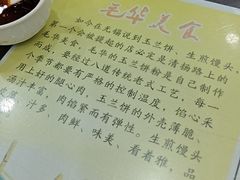 毛华美食
如今在无锡说到玉兰饼、生煎馒头
第一个会被提起的店必定是清扬路上的
毛华美食，毛华的玉兰饼粉是自己制作
而成，要经过八道传统老式工艺，每一
个季节都要有严格的控制温度，馅心采
用上好的腿心肉，玉兰饼的外壳薄脆、
汤汁丰富，肉馅紧而有弹性。生煎馒头
汁多、肉鲜、味美、看着雅，品